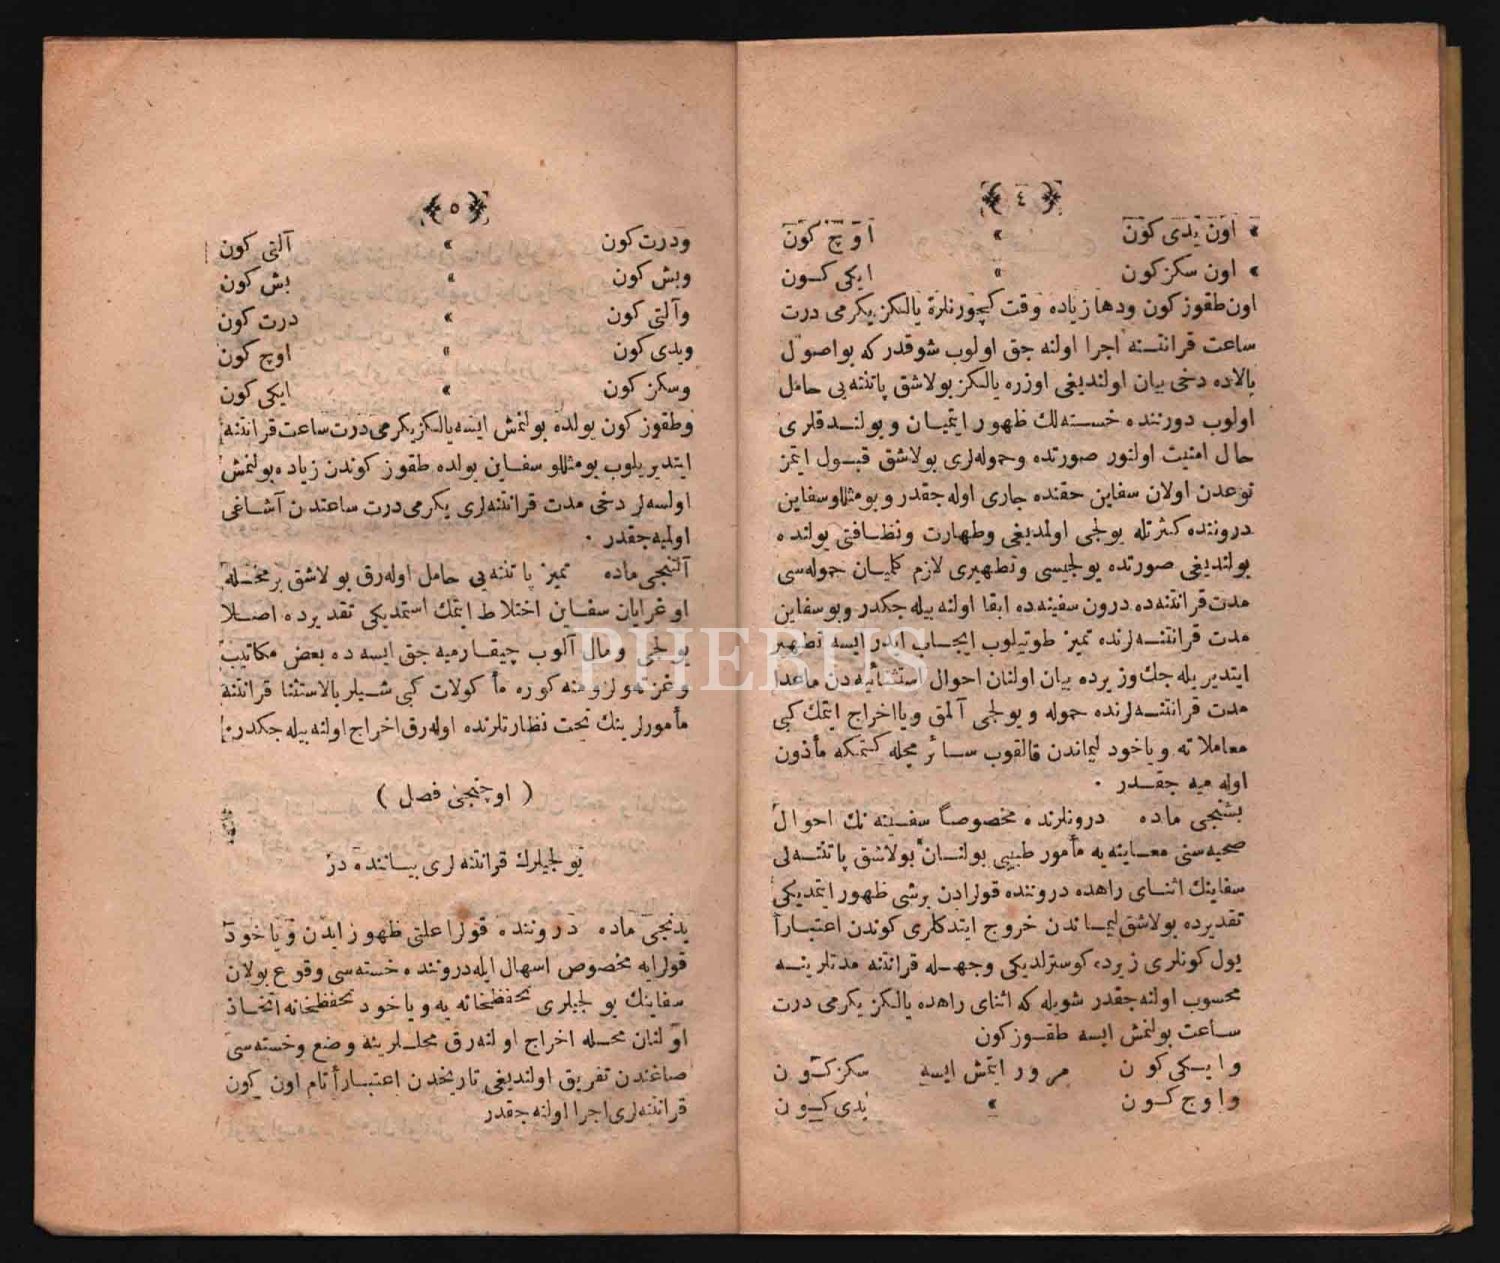 ٤
» اون يدی كون » اوچ كون
» اون سكز كون » ايكی كون
اون طقوز كون ودها زياده وقت كچورنلره يالكز يكرمی درت
ساعت قرانتنه اجرا اولنه جق اولوب شوقدر كه بو اصول
بالاده دخی بيان اولنديغی اوزره يالكز بولاشق پاتنته يی حامل
اولوب دورننده خسته لك ظهور ايتميان و بولندقلری
حال امنيت اولنور صورتده وحموله لری بولاشق قبول ايتمز
نوعدن اولان سفاين حقنده جاری اوله جقدر و بو مثللو سفاين
دروننده كثرتله يولجی اولمديغی وطهارت ونظافتی يولنده
بولنديغی صورتده يولجيسی وتطهيری لازم كليان حموله سی
مدت قرانتنه ده درون سفينه ده ابقا اولنه بيله جكدر و بو سفاين
مدت قرانتنه لرنده تميز طوتيلوب ايجاب ايدر ايسه تطهير
ايتديريله جك وزيرده بيان اولنان احوال استثنائيه دن ماعدا
مدت قرانتنه لرنده حموله و يولجی آلمق و يا اخراج ايتمك كبی
معاملاته و ياخود ليماندن قالقوب سائر محله كتمكه مأذون
اوله ميه جقدر ٠
بشنجی ماده درونلرنده مخصوصاً سفينه نك احوال
صحيه سنی معاينه يه مأمور طبيبی بولنان بولاشق پاتنته لی
سفاينك اثنای راهده دروننده قولرادن برشی ظهور ايتمديكی
تقديرده بولاشق ليماندن خروج ايتدكلری كوندن اعتباراً
يول كونلری زيرده كوسترلديكی وجهله قرانتنه مدتلرينه
محسوب اولنه جقدر شويله كه اثنای راهده يالكز يكرمی درت
ساعت بولنمش ايسه طقوز كون
وايكی كون مرور ايتمش ايسه سكز كون
واوچ كون » يدی كون
٥
ودرت كون » آلتی كون
وبش كون » بش كون
وآلتی كون » درت كون
ويدی كون » اوچ كون
وسكز كون » ايكی كون
وطقوز كون يولده بولنمش ايسه يالكز يكرمی درت ساعت قرانتنه
ايتديريلوب بو مثللو سفاين يولده طقوز كوندن زياده بولنمش
اولسه لر دخی مدت قرانتنه لری يكرمی درت ساعتدن آشاغی
اولميه جقدر ٠
آلتنجی ماده تميز پاتنته يی حامل اوله رق بولاشق بر محله
اوغرايان سفاين اختلاط ايتمك استمديكی تقديرده اصلا
يولجی و مال آلوب چيقارميه جق ايسه ده بعض مكاتيب
وغزته و لزومنه كوره مأكولات كبی شيلر بالاستثنا قرانتنه
مأمورلرينك تحت نظارتلرنده اوله رق اخراج اولنه بيله جكدر ٠
( اوچنجی فصل )
يولجيلرك قرانتنه لری بياننده در
يدنجی ماده دروننده قولرا علتی ظهور ايدن و ياخود
قولرايه مخصوص اسهال ايله دروننده خسته سی وقوع بولان
سفاينك يولجيلری تحفظخانه يه و ياخود تحفظخانه اتخاذ
اولنان محله اخراج اولنه رق محللرينه وضع وخسته سی
صاغندن تفريق اولنديغی تاريخدن اعتباراً تام اون كون
قرانتنه لری اجرا اولنه جقدر
PHEBUS